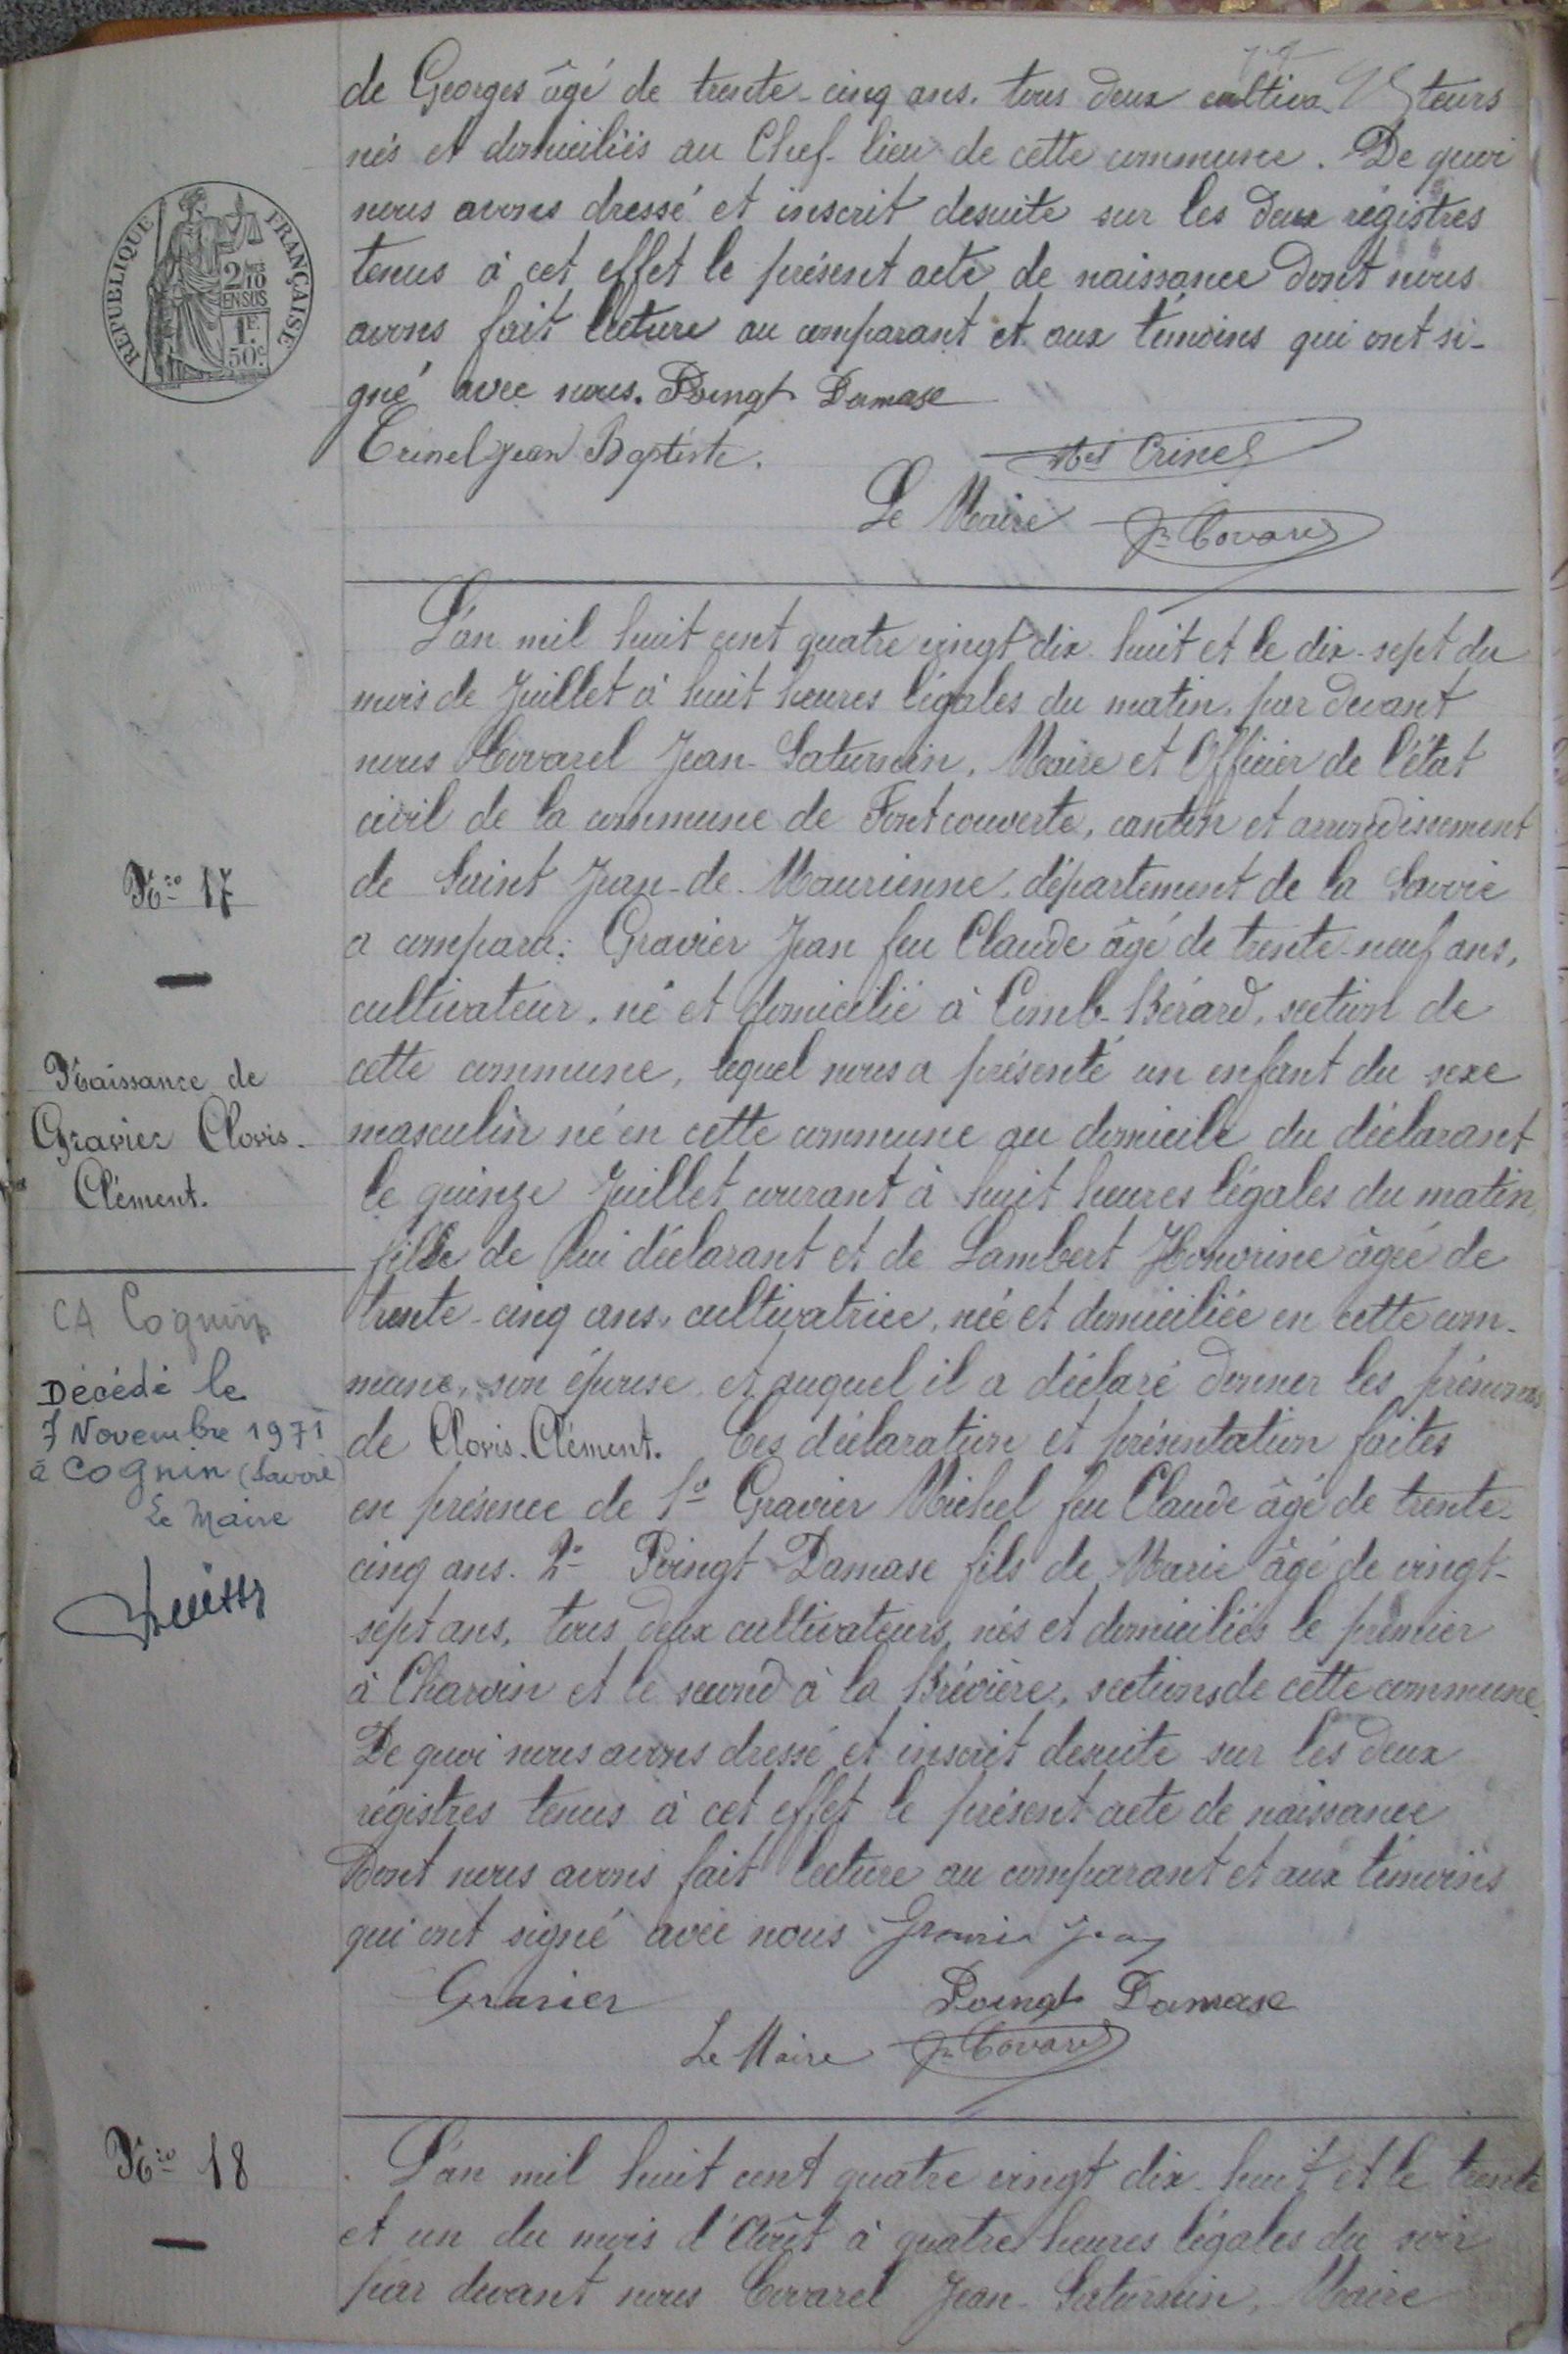 de Georges âgé de trente-cinq ans. tous deux cultiva teurs
nés et domiciliés au Chef-lieu de cette commune. De quoi
nous avons dressé et inscrit desuite sur les deux régistres
tenus à cet effet le présent acte de naissance dont nous
avons fait lecture au comparant et aux témoins qui ont si-
gné avec nous. Poingt Damase
Crinel Jean Baptiste.
Crinel
Le Maire Js Covarel
RÉPUBLIQUE FRANÇAISE
2/10
EN SUS
1F.
50c.
L'an mil huit cent quatre vingt dix-huit et le dix-sept du
mois de Juillet à huit heures légales du matin, par devant
nous Covarel Jean-Saturnin, Maire et Officier de l'état
civil de la commune de Fontcouverte, canton et arrondissement
de Saint Jean-de-Maurienne, département de la Savoie
a comparu: Gravier Jean feu Claude âgé de trente-neuf ans,
cultivateur, né et domicilié à Comb-Bérard, section de
cette commune, lequel nous a présenté un enfant du sexe
masculin né en cette commune au domicile du déclarant
le quinze Juillet courant à huit heures légales du matin,
fils de lui déclarant et de Lambert Honorine âgée de
trente-cinq ans, cultivatrice, née et domiciliée en cette com-
mune, son épouse, et auquel il a déclaré donner les prénoms
de Clovis-Clément. Ces déclaration et présentation faites
en présence de 1o Gravier Michel feu Claude âgé de trente-
cinq ans. 2o Poingt Damase fils de Marie âgé de vingt-
sept ans, tous deux cultivateurs, nés et domiciliés le premier
à Charvin et le second à la Brévière, sections de cette commune.
De quoi nous avons dressé et inscrit desuite sur les deux
régistres tenus à cet effet le présent acte de naissance
dont nous avons fait lecture au comparant et aux témoins
qui ont signé avec nous Gravier Jean
Gravier Poingt Damase
Le Maire Js Covarel
Nro 17
Naissance de
Gravier Clovis-
Clément.
CA Cognin
Décédé le
7 Novembre 1971
à Cognin (Savoie)
Le Maire
Nro 18
L'an mil huit cent quatre vingt dix-huit et le trente
et un du mois d'Août à quatre heures légales du soir
par devant nous Covarel Jean-Saturnin, Maire